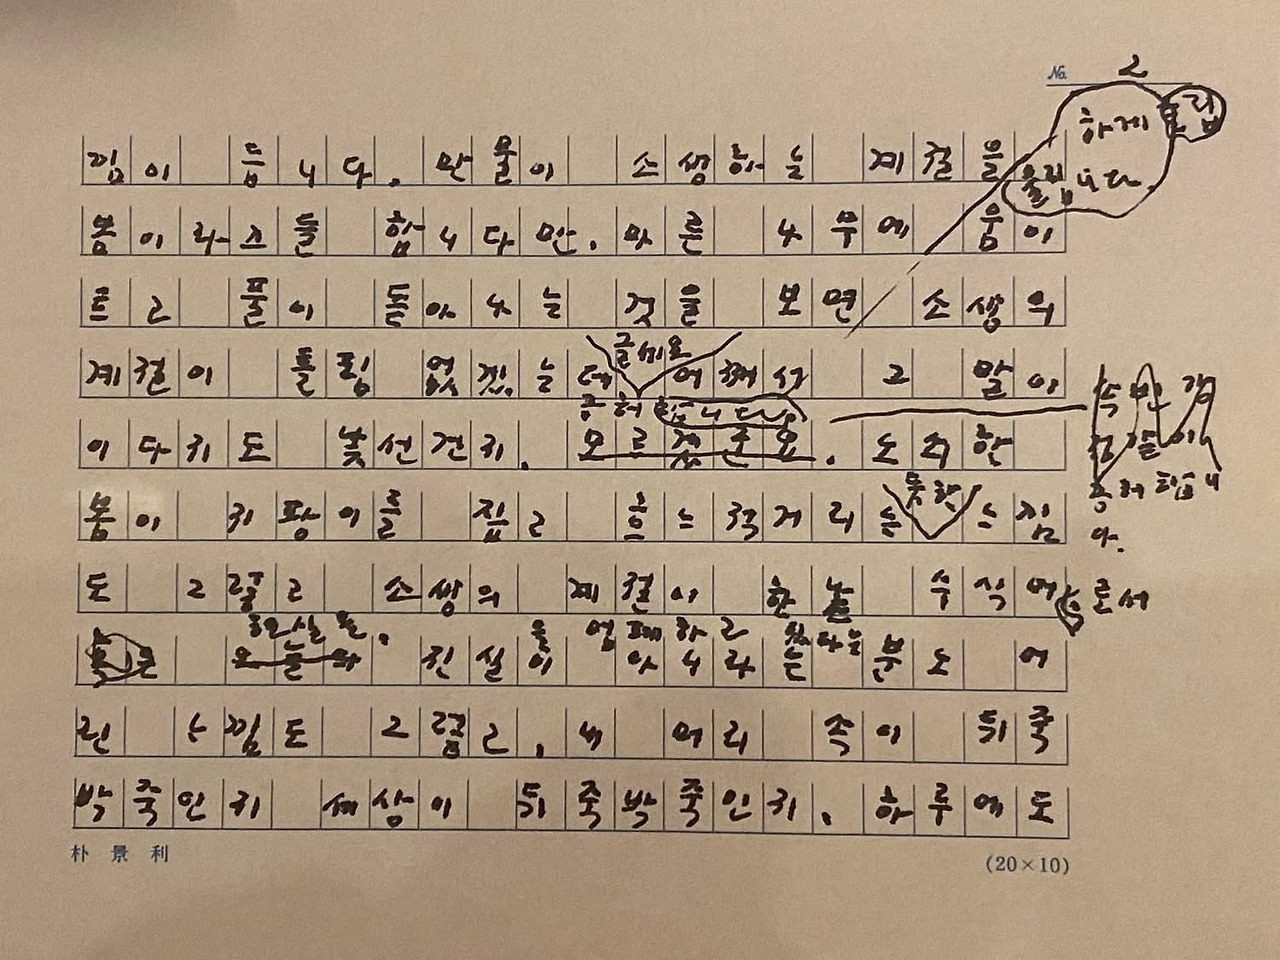 No. 2
하게
니다.
낌이 듭니다. 만물이 소생하는 계절을
봄이라 들 합니다만, 마른 나무에 움이
트고 풀이 돋아나는 것을 보면 소생의
글쎄요
계절이 틀림 없겠는데 어째서 그 말이
공허합니다.
이다지도 낯선건지, 모르겠군요. 노쇠한
듯한
봄이 지팡이를 짚고 흐느적거리는 느낌
공허합니
다.
도 그렇고 소생의 계절이 한낱 수식어로서
현실을,
진실이 아니라는 분노 어
린 느낌도 그렇고, 내 머리 속이 뒤죽
박죽인지 세상이 뒤죽박죽인지, 하루에도
朴景利
(20×10)